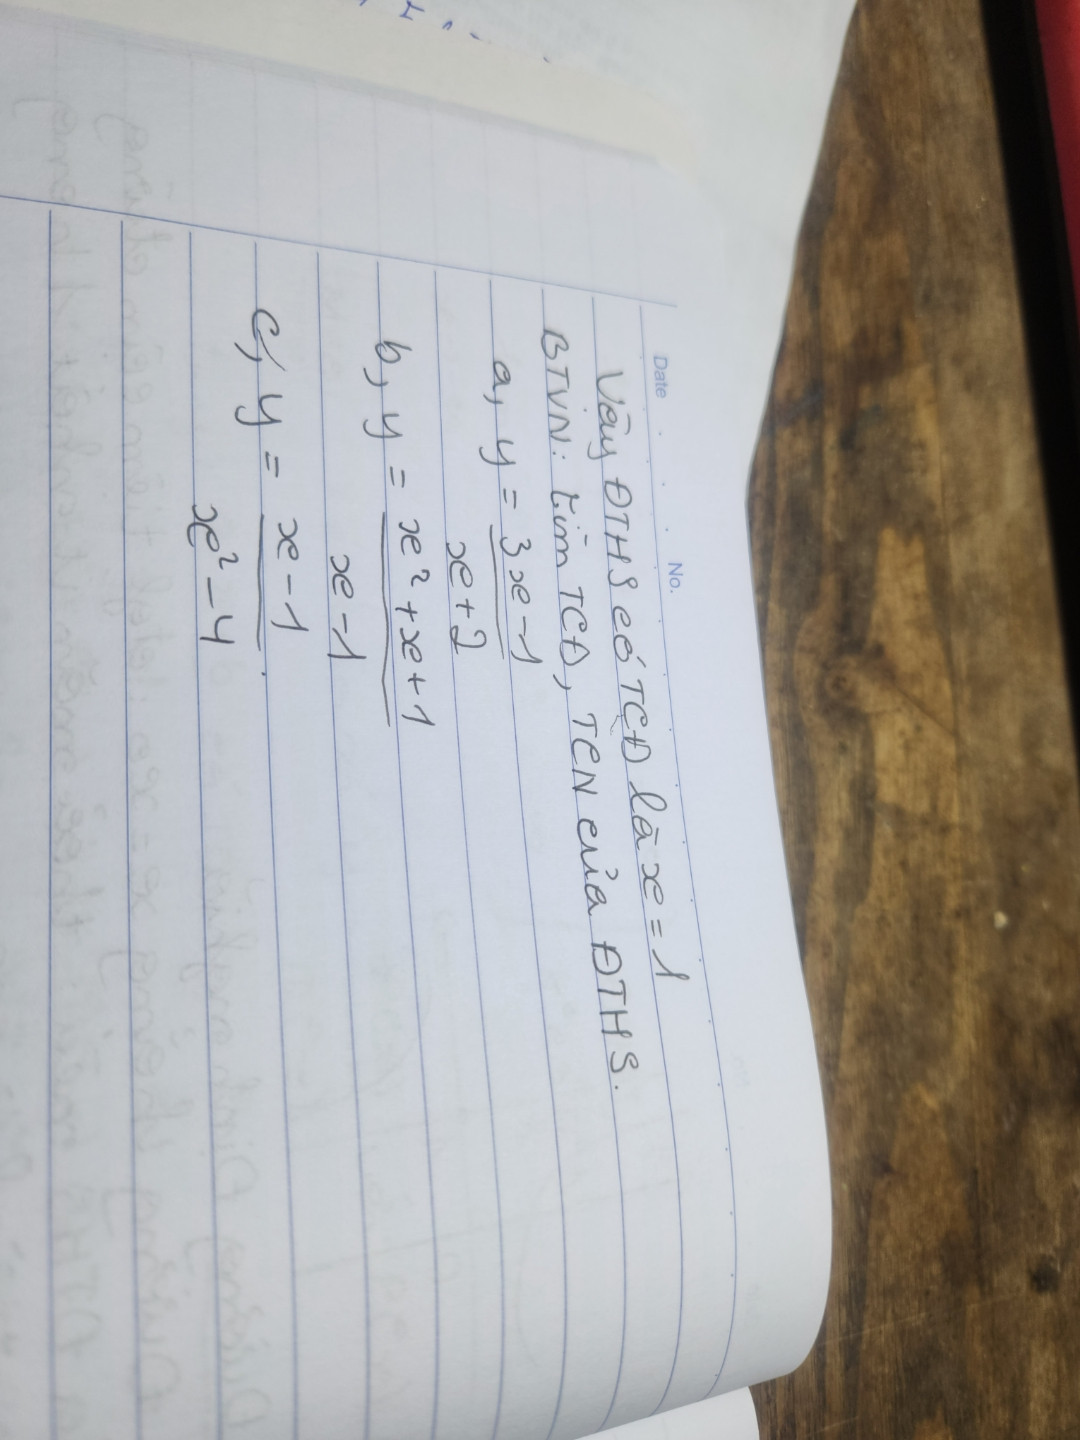 Date No.
Vậy ĐTHS có TCĐ là x = 1
BTVN: tìm TCĐ, TCN của ĐTHS.
a, y = 3x-1
x+2
b, y = x²+x+1
x-1
c, y = x-1
x²-4